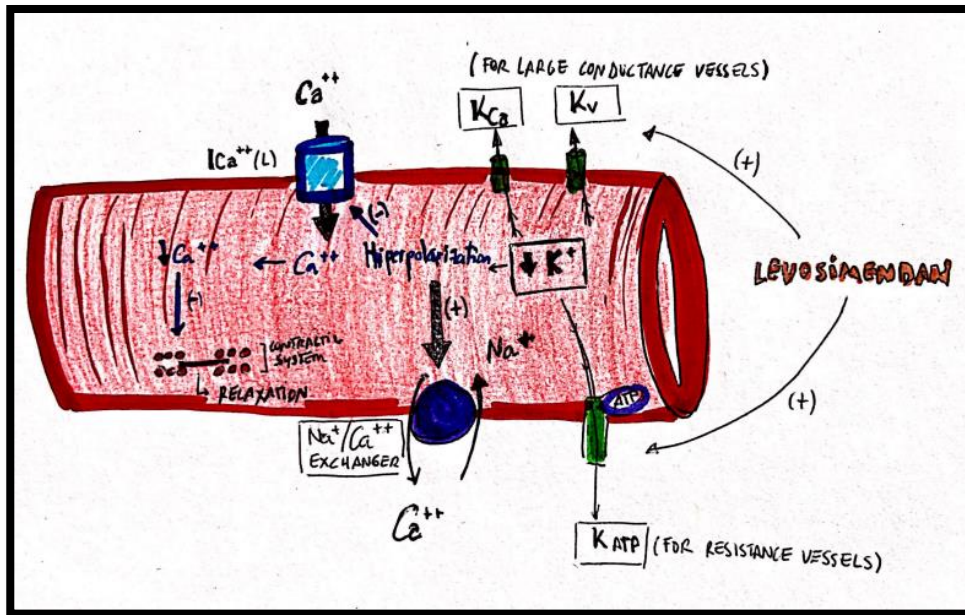 (FOR LARGE CONDUCTANCE VESSELS)
Ca++
KCa
Kv
ICa++(L)
(+)
(-)
↓Ca++
Ca++
Hiperpolarization
↓ K+
LEVOSIMENDAN
(-)
(+)
Na+
CONTRACTIL
SYSTEM
RELAXATION
ATP
(+)
Na+/Ca++
EXCHANGER
Ca++
KATP (FOR RESISTANCE VESSELS)